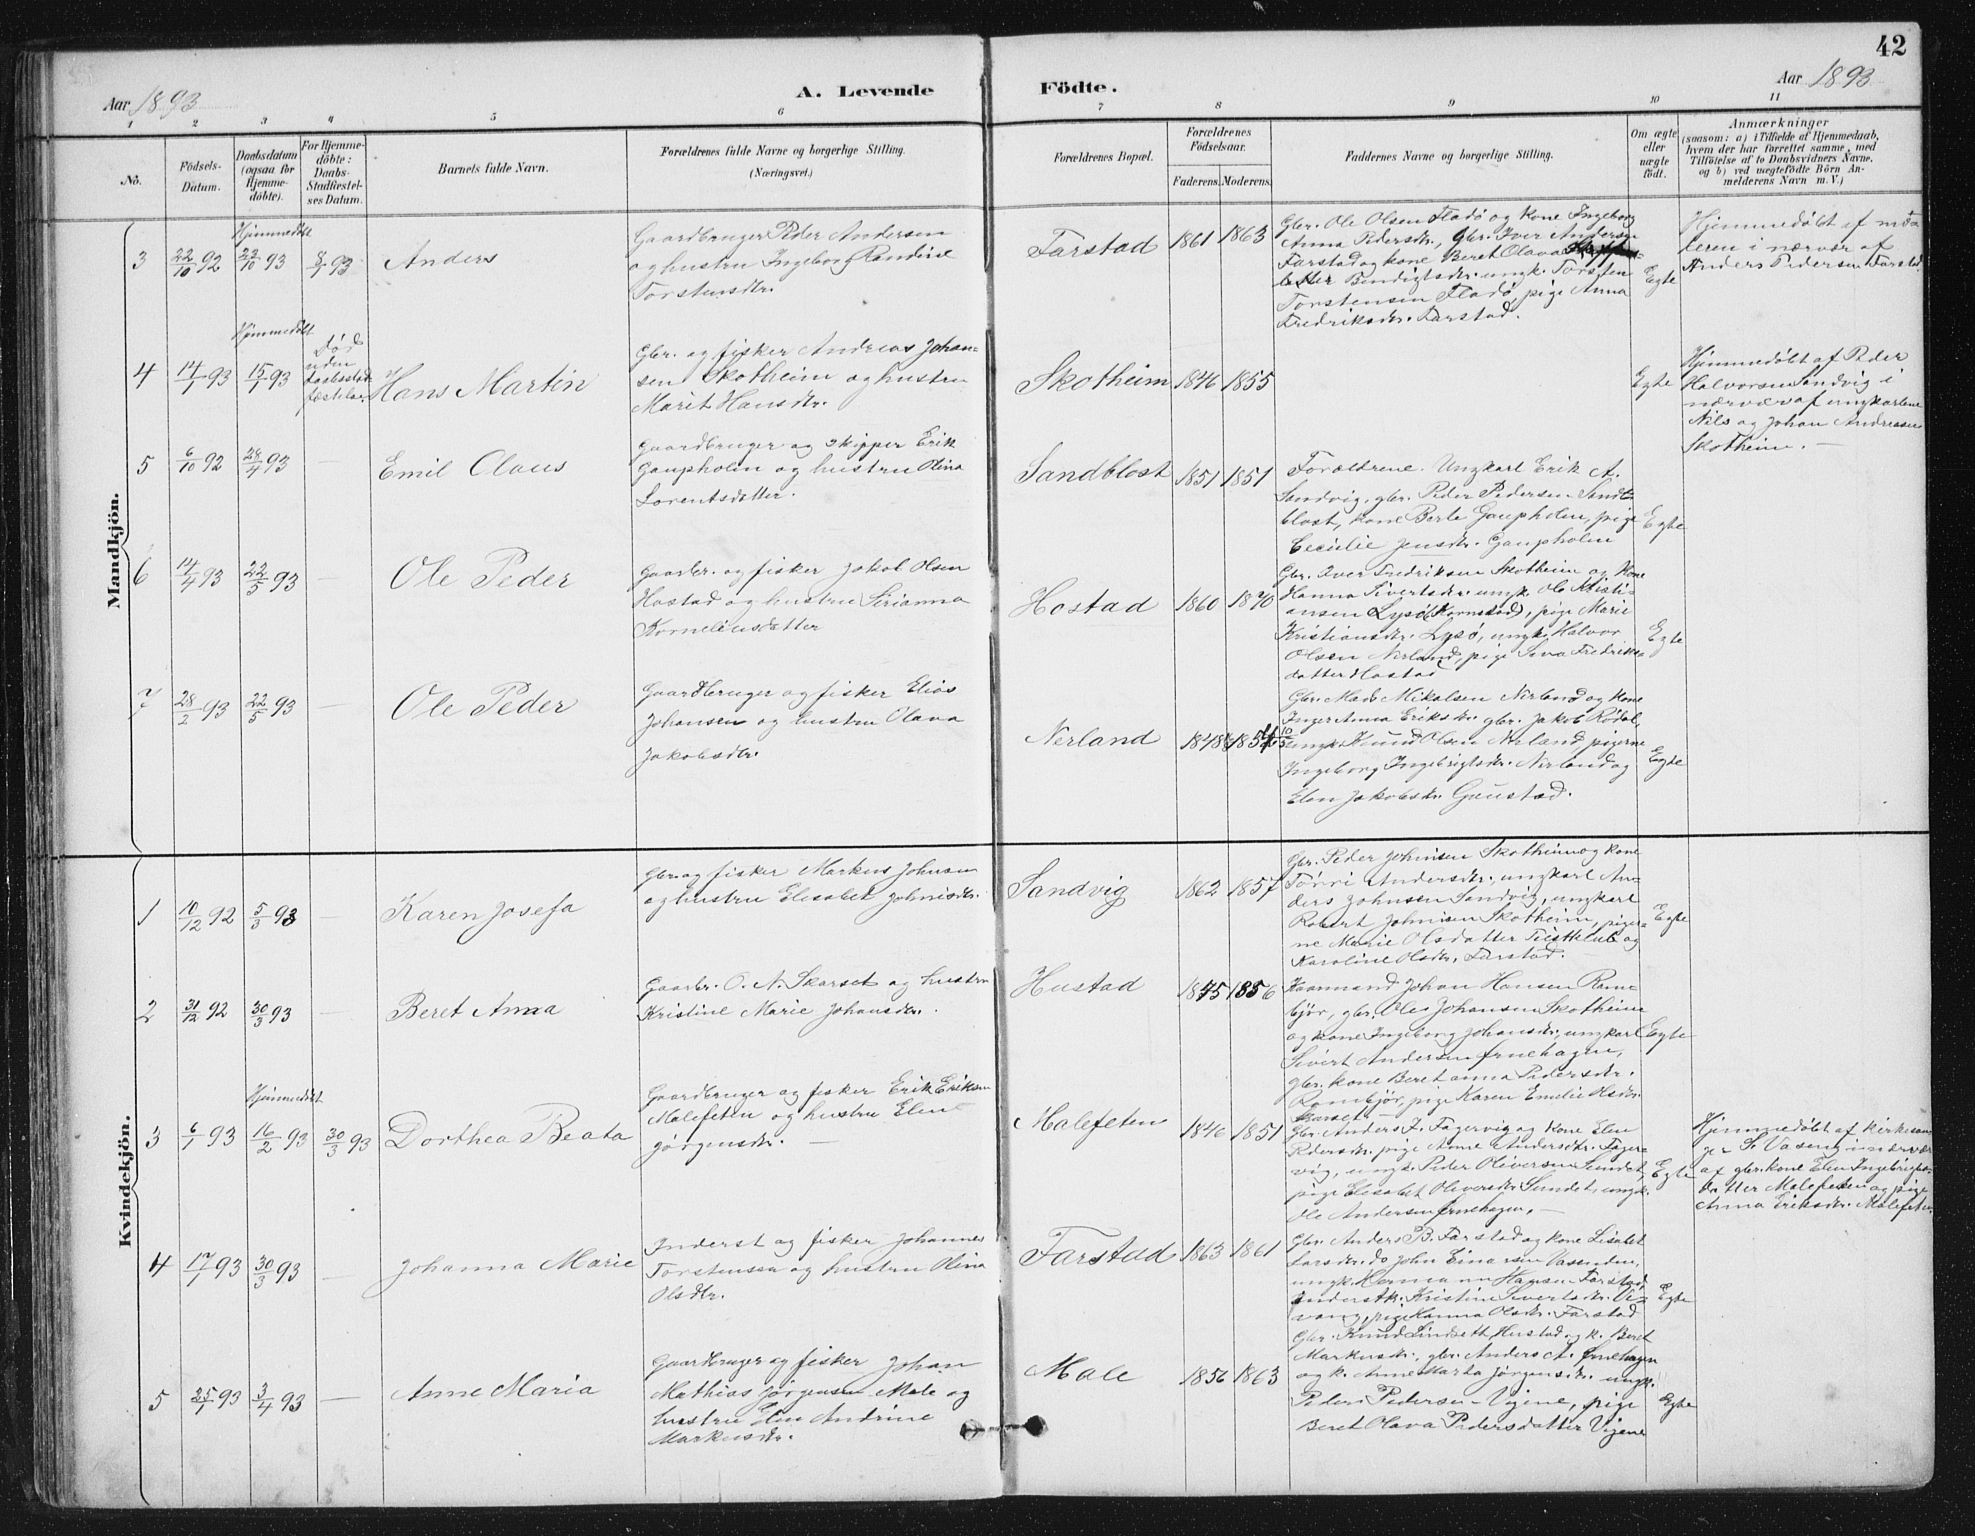 42
Aar 1893
A. Levende
Födte.
Aar 1893
1 2 3 4 5 6 7 8 9 10 11
No.
Födsels-
Datum.
Daabsdatum
(ogsaa for
Hjemme-
döbte).
For Hjemme-
döbte:
Daabs-
Stadfæstel-
ses Datum.
Barnets fulde Navn.
Forældrenes fulde Navne og borgerlige Stilling.
(Næringsvei.)
Forældrenes Bopæl.
Forældrenes
Födselsaar.
Faderens. Moderens.
Faddernes Navne og borgerlige Stilling.
Om ægte
eller
uægte
födt.
Anmærkninger
(saasom: a) i Tilfælde af Hjemmedaab,
hvem der har forrettet samme, med
Tilföielse af to Daabsvidners Navne,
og b) ved uægtefödte Börn An-
melderens Navn m. V.)
Mandkjön.
Hjemmedöbt
3 22/10 92 22/10 93 8/1 93 Anders
Gaardbruger Peder Andersen
og hustru Ingeborg Randine
Torstensdtr.
Farstad 1861 1863
Gbr. Ole Olsen Fladö og kone Ingeborg
Anna Pedersdtr., Gbr. Iver Andersen
Farstad og kone Beret Olava
Bendigtsdtr. ungk. Torsten
Torstensen Fladö, pige Anna
Fredriksdtr. Farstad.
Egte
Hjemmedöbt af
i nærvær af
Anders Pedersen Farstad
Hjemmedöbt
4 14/1 93 15/1 93
Död
uden
Hans Martin
Gbr. og fisker Andreas Johan-
sen Skotheim og hustru
Marit Hansdtr.
Skotheim 1846 1855
Egte
Hjemmedöbt af Peder
Halvorsen Sandvig i
nærvær af ungkarlene
Nils og Johan Andreassen
Skotheim. —
5 6/10 92 28/4 93 — Emil Claus
Gaardbruger og skipper Erik
Gaupholm og hustru Olina
Lorentsdatter.
Sandblost 1851 1851
Forældrene. Ungkarl Erik A.
Sandvig, gbr. Peder Pedersen Sand-
blost, kone Berte Gaupholm, pige
Cecilie Jensdtr. Gaupholm
Egte
6 14/4 93 22/5 93 — Ole Peder
Gaardbr. og fisker Jakob Olsen
Hostad og hustru Sirianna
Korneliusdatter
Hostad 1860 1870
Gbr. Iver Fredriksen Skotheim og kone
Hanna Sivertsdtr. ungk. Ole Kristi-
ansen Lysö (Kornstad), pige Marie
Kristiansdtr. Lysö, ungk. Halvor
Olsen Nerland, pige Seva Fredriks-
datter Hostad
Egte
7 28/2 93 22/5 93 — Ole Peder
Gaardbruger og fisker Elias
Johansen og hustru Olava
Jakobsdtr.
Nerland 1848
Gbr. Mads Mikalsen Nerland og kone
Inger Anna Eriksdtr. gbr. Jakob Rödal,
ungk. Knud Olsen Nerland, pigerne
Ingeborg Ingebrigtsdtr. Nerland og
Elen Jakobsdtr. Gaustad.
Egte
Kvindekjön.
1 10/12 92 5/3 93 — Karen Josefa
Gbr. og fisker Markus Johnsen
og hustru Elisabet Johnsdtr.
Sandvig 1862 1857
Gbr. Peder Johnsen Skotheim og kone
Törri Andersdtr., ungkarl An-
ders Johnsen Sandvig, ungkarl
Robert Johnsen Skotheim, piger-
ne Marie Olsdatter og
Karoline Olsdtr. Farstad.
Egte
2 31/12 92 30/3 93 — Beret Anna
Gaardbr. O. N. Skarset og hustru
Kristine Marie Johansdtr.
Hustad 1845 1856
Kaarmand Johan Hansen Rom-
björ, gbr. Ole Johansen Skotheim
og kone Ingeborg Johansdtr., ungkarl
Sivert Andersen Ernehagen,
gbr. kone Beret Anna Pedersdtr.
Rombjör, pige Karen Emilie Olsdtr.
Skarset. —
Egte
Hjemmedöbt
3 6/1 93 16/2 93 30/3 93 Dorthea Beata
Gaardbruger og fisker Erik Eriksen
Malefeten og hustru Elen
Jörgensdtr. —
Malefeten 1846 1851
Gbr. Anders J. Fagervig og kone Elen
Pedersdtr. pige Anne Andersdtr. Fager-
vig, ungk. Peder Oliversen Sundet,
pige Elisabet Oliversdtr. Sundet, ungk.
Ole Andersen Ernehagen. —
Egte
Hjemmedöbt af kirkesan-
ger S. Vaseng i nærvær
af gbr. kone Elen Ingebrigts-
datter Malefeten og pige
Anna Eriksdtr. Malefeten.
4 17/1 93 30/3 93 — Johanna Marie
Inderst og fisker Johannes
Torstensen og hustru Olina
Olsdtr.
Farstad 1863 1861
Gbr. Anders B. Farstad og kone Lisabet
Larsdtr. do John Einarsen Vassenden,
ungk. Herman Hansen Farstad,
inderstk. Kristine Sivertsdtr.
pige Hanna Olsdtr. Farstad
Egte
5 25/1 93 3/4 93 — Anne Maria
Gaardbruger og fisker Johan
Mathias Jörgensen Male og
hustru Elen Andrine
Markusdtr.
Male 1856 1863
Gbr. Knud Lindseth Hustad og k. Beret
Markusdtr., gbr. Anders A. Ernehagen
og k. Anne Marta Jörgensdtr. ungk.
Peder Pedersen Vigene, pige
Beret Olava Pedersdatter Vigene
Egte